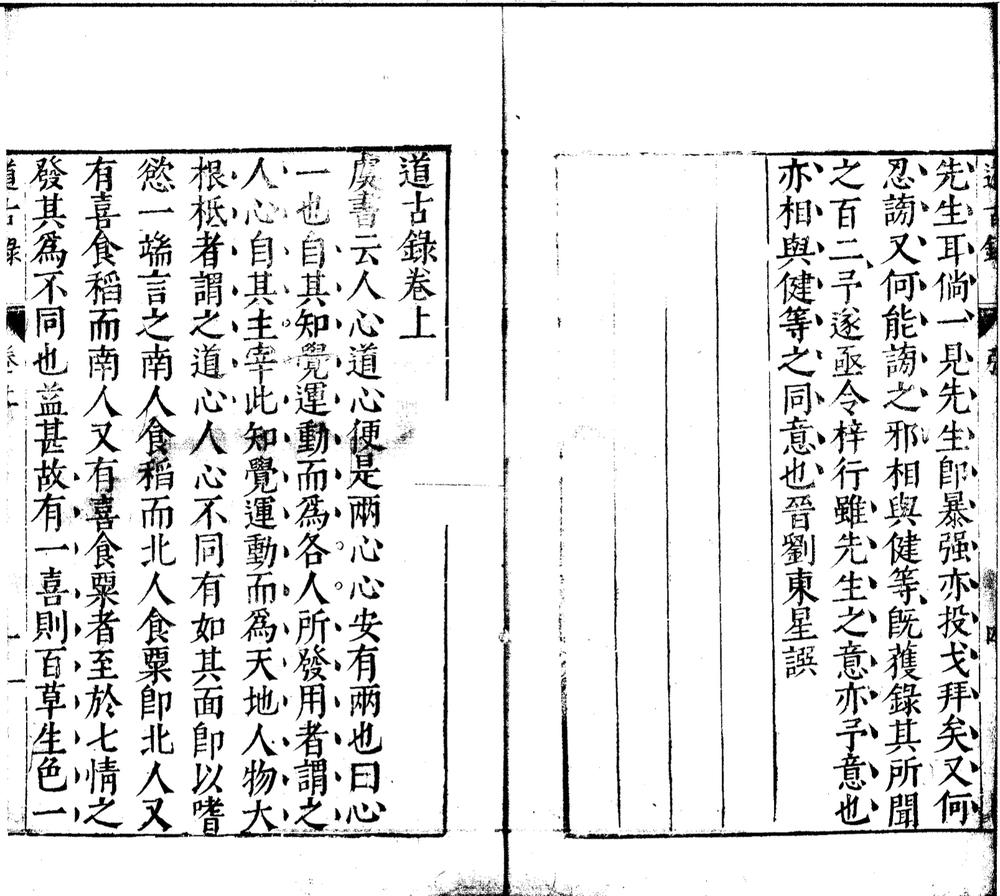 先生耳倘一見先生卽暴强亦投戈拜矣又何
忍謗又何能謗之邪相與健等旣蒦錄其所聞
之百二予遂亟令梓行雖先生之意亦予意也
亦相與健等之同意也晉劉東星譔
道古錄卷上
虞書云人心道心便是兩心心安有兩也曰心
一也自其知覺運動而爲各人所發用者謂之
人心自其主宰此知覺運動而爲天地人物大
根柢者謂之道心人心不同有如其面卽以嗜
慾一端言之南人食稻而北人食粟卽北人又
有喜食稻而南人又有喜食粟者至於七情之
發其爲不同也葢甚故有一喜則百草生色一
道古錄
卷上